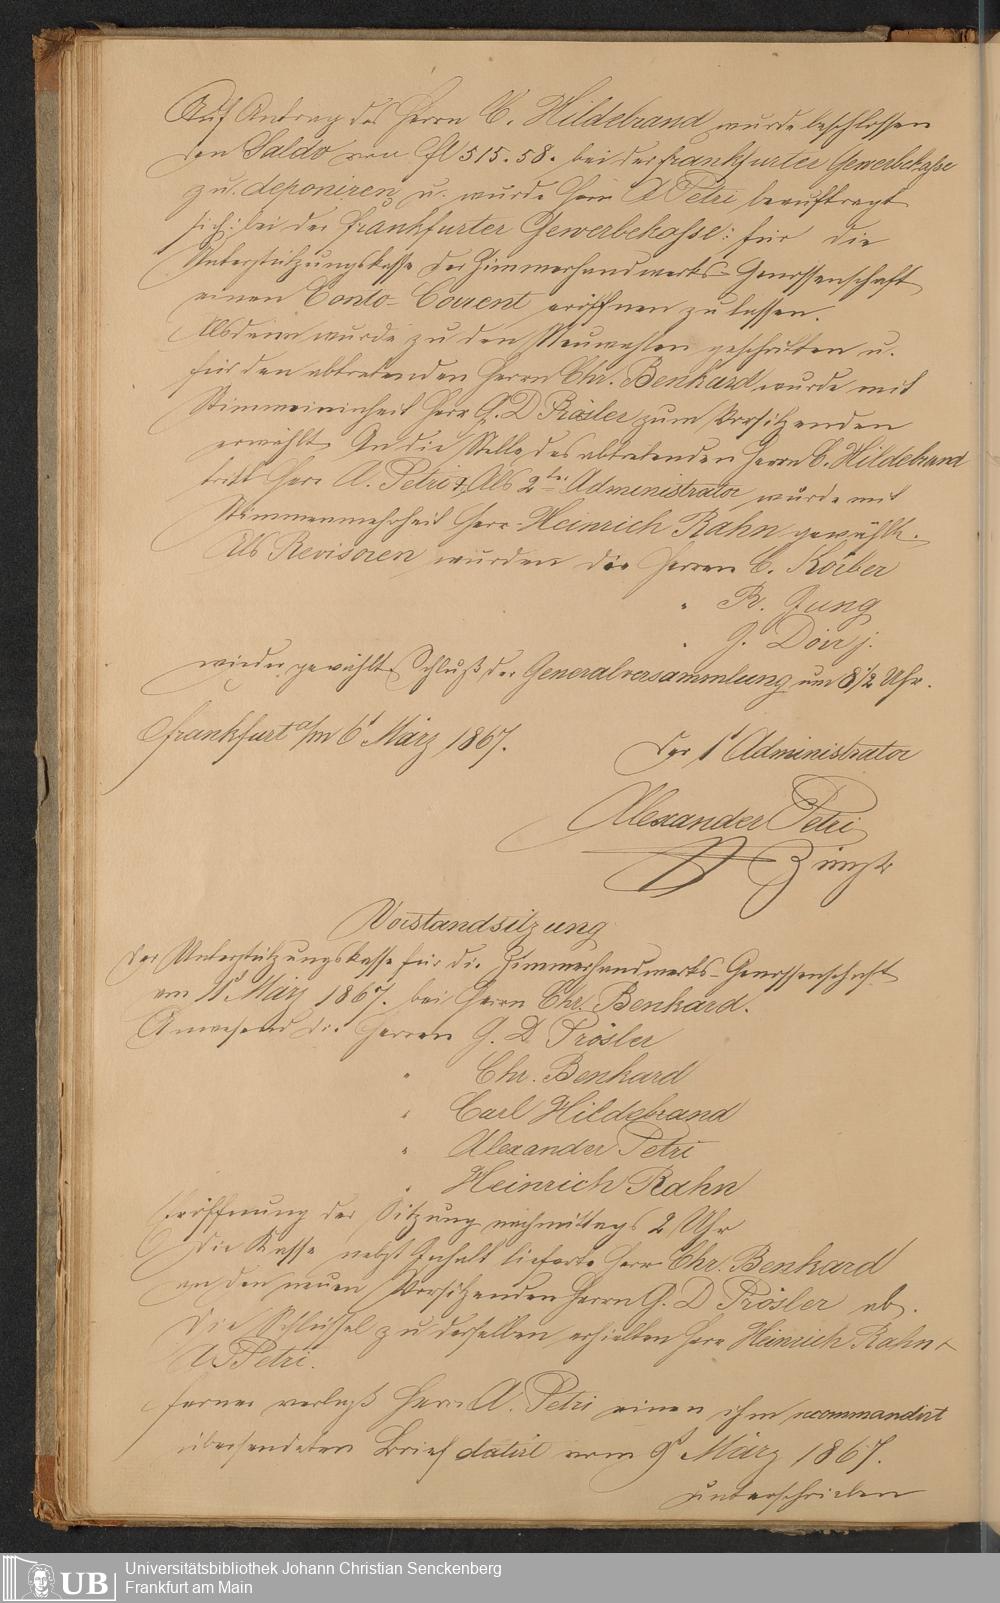 Auf Antrag des Herrn C. Hildebrand wurde beschlossen
den Saldo von fl 515.58. bei der Frankfurter Gewerbekasse
zu deponiren, u. wurde Herr A Petri beauftragt
sich: bei der Frankfurter Gewerbekasse: für die
Unterstützungskasse der Zimmerhandwerks-Genossenschaft
einen Conto-Courent eröffnen zu lassen.
Alsdann wurde zu den Neuwahlen geschritten u.
für den abtretenden Herrn Chr. Benkard wurde mit
Stimmeneinheit Herr G. D Prösler zum Vorsitzenden
erwählt. An die Stelle des abtretenden Herrn C. Hildebrand
tritt Herr A. Petri &. Als 2ter Administrator wurde mit
Stimmenmehrheit Herr Heinrich Rahn gewählt.
Als Revisoren wurden die Herren C. Körber
" R. Jung
" G. Dörr j.
wieder gewählt. Schluß der Generalversammlung um 8 1/2 Uhr.
Frankfurt a/m 6t März 1867.
Der 1t Administrator
Alexander Petri
Vorstandsitzung
der Unterstützungskasse für die Zimmerhandwerks-Genossenschaft
am 11t März 1867. bei Herrn Chr. Benkard.
Anwesend die Herren G. D. Prösler
" Chr. Benkard
" Carl Hildebrand
" Alexander Petri
" Heinrich Rahn
Eröffnung der Sitzung nachmittags 2 Uhr
Die Kasse nebst Inhalt lieferte Herr Chr. Benkard
an den neuen Vorsitzenden Herrn G. D Prösler ab.
Die Schlüssel zu derselben erhielten Herr Heinrich Rahn &
A Petri.
Ferner verlaß Herr A. Petri einen ihm recommandirt
übersendeten Brief datirt vom 9t März 1867.
unterschrieben
UB
Universitätsbibliothek Johann Christian Senckenberg
Frankfurt am Main